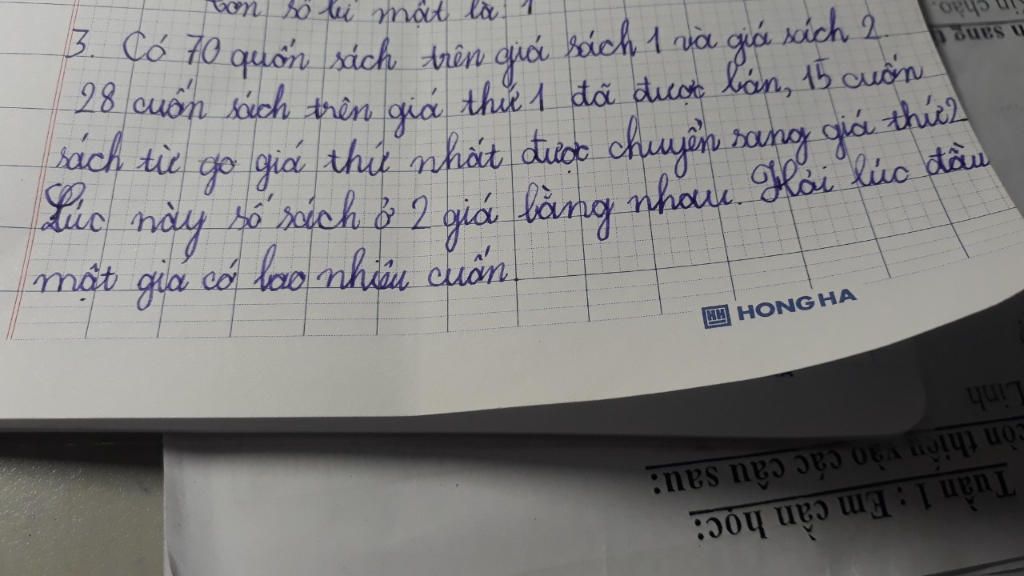 bốn số lẻ một là 1
3. Có 70 quốn sách trên giá sách 1 và giá sách 2.
28 cuốn sách trên giá thứ 1 đã được bán, 15 cuốn
sách từ go giá thứ nhất được chuyển sang giá thứ 2
Lúc này số sách ở 2 giá bằng nhau. Hỏi lúc đầu
một giá có bao nhiêu cuốn
HH HONG HA
Linh
còn thiếu vào các câu sau:
Tuần 1 : Em cần học: